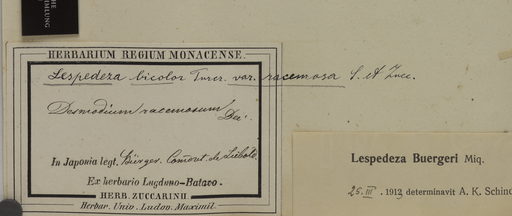 HE
MMLUNG
HERBARIUM REGIUM MONACENSE.
Lespedeza bicolor Turcz. var. racemosa S. et Zucc.
Desmodium racemosum Dc.
In Japonia legt. Bürger. Comunt. de Siebold.
Ex herbario Lugduno-Batavo.
HERB. ZUCCARINII
Herbar. Univ. Ludov. Maximil.
Lespedeza Buergeri Miq.
25. III. 1913 determinavit A. K. Schind